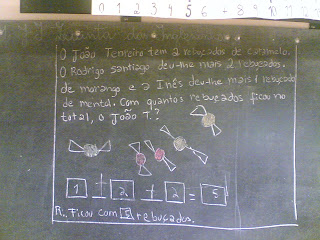 n 1 2 3 4 5 6 + 8 9 10 11 12
O João Tenreiro tem 2 rebuçados de caramelo.
O Rodrigo Santiago deu-lhe mais 2 rebuçados.
de morango e a Inês deu-lhe mais 1 rebuçado
de mentol. Com quantos rebuçados ficou no
total, o João T.?
1 + 2 + 2 = 5
R. Ficou com 5 rebuçados.